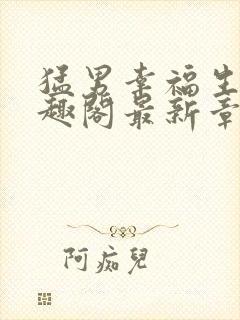 猛男幸福生
趣阁最新章
阿痴兒